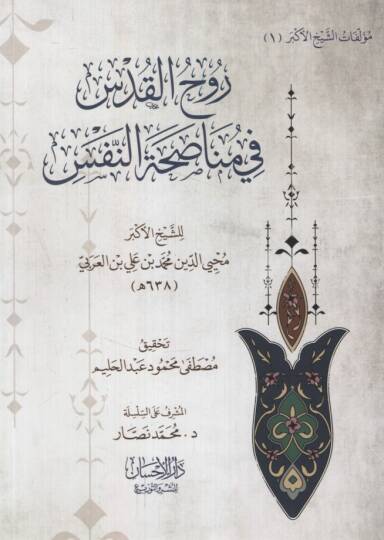 مؤلفات الشيخ الأكبر (١)
رُوحُ القُدْس
فِي مُنَاصَحَةِ النَّفْسِ
للشيخ الأكبر
محيي الدين محمد بن علي بن العربي
(٦٣٨هـ)
تحقيق
مصطفى محمود عبد الحليم
المشرف على السلسلة
د. محمد نصار
دار الإحسان
للنشر والتوزيع